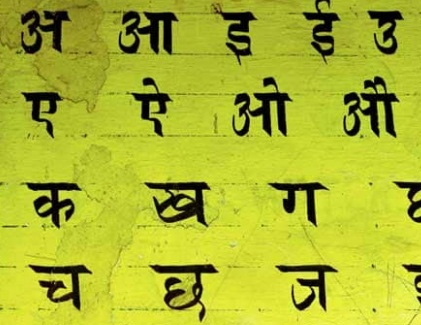 अ आ इ ई उ
ए ऐ ओ औ
क ख ग
च छ ज